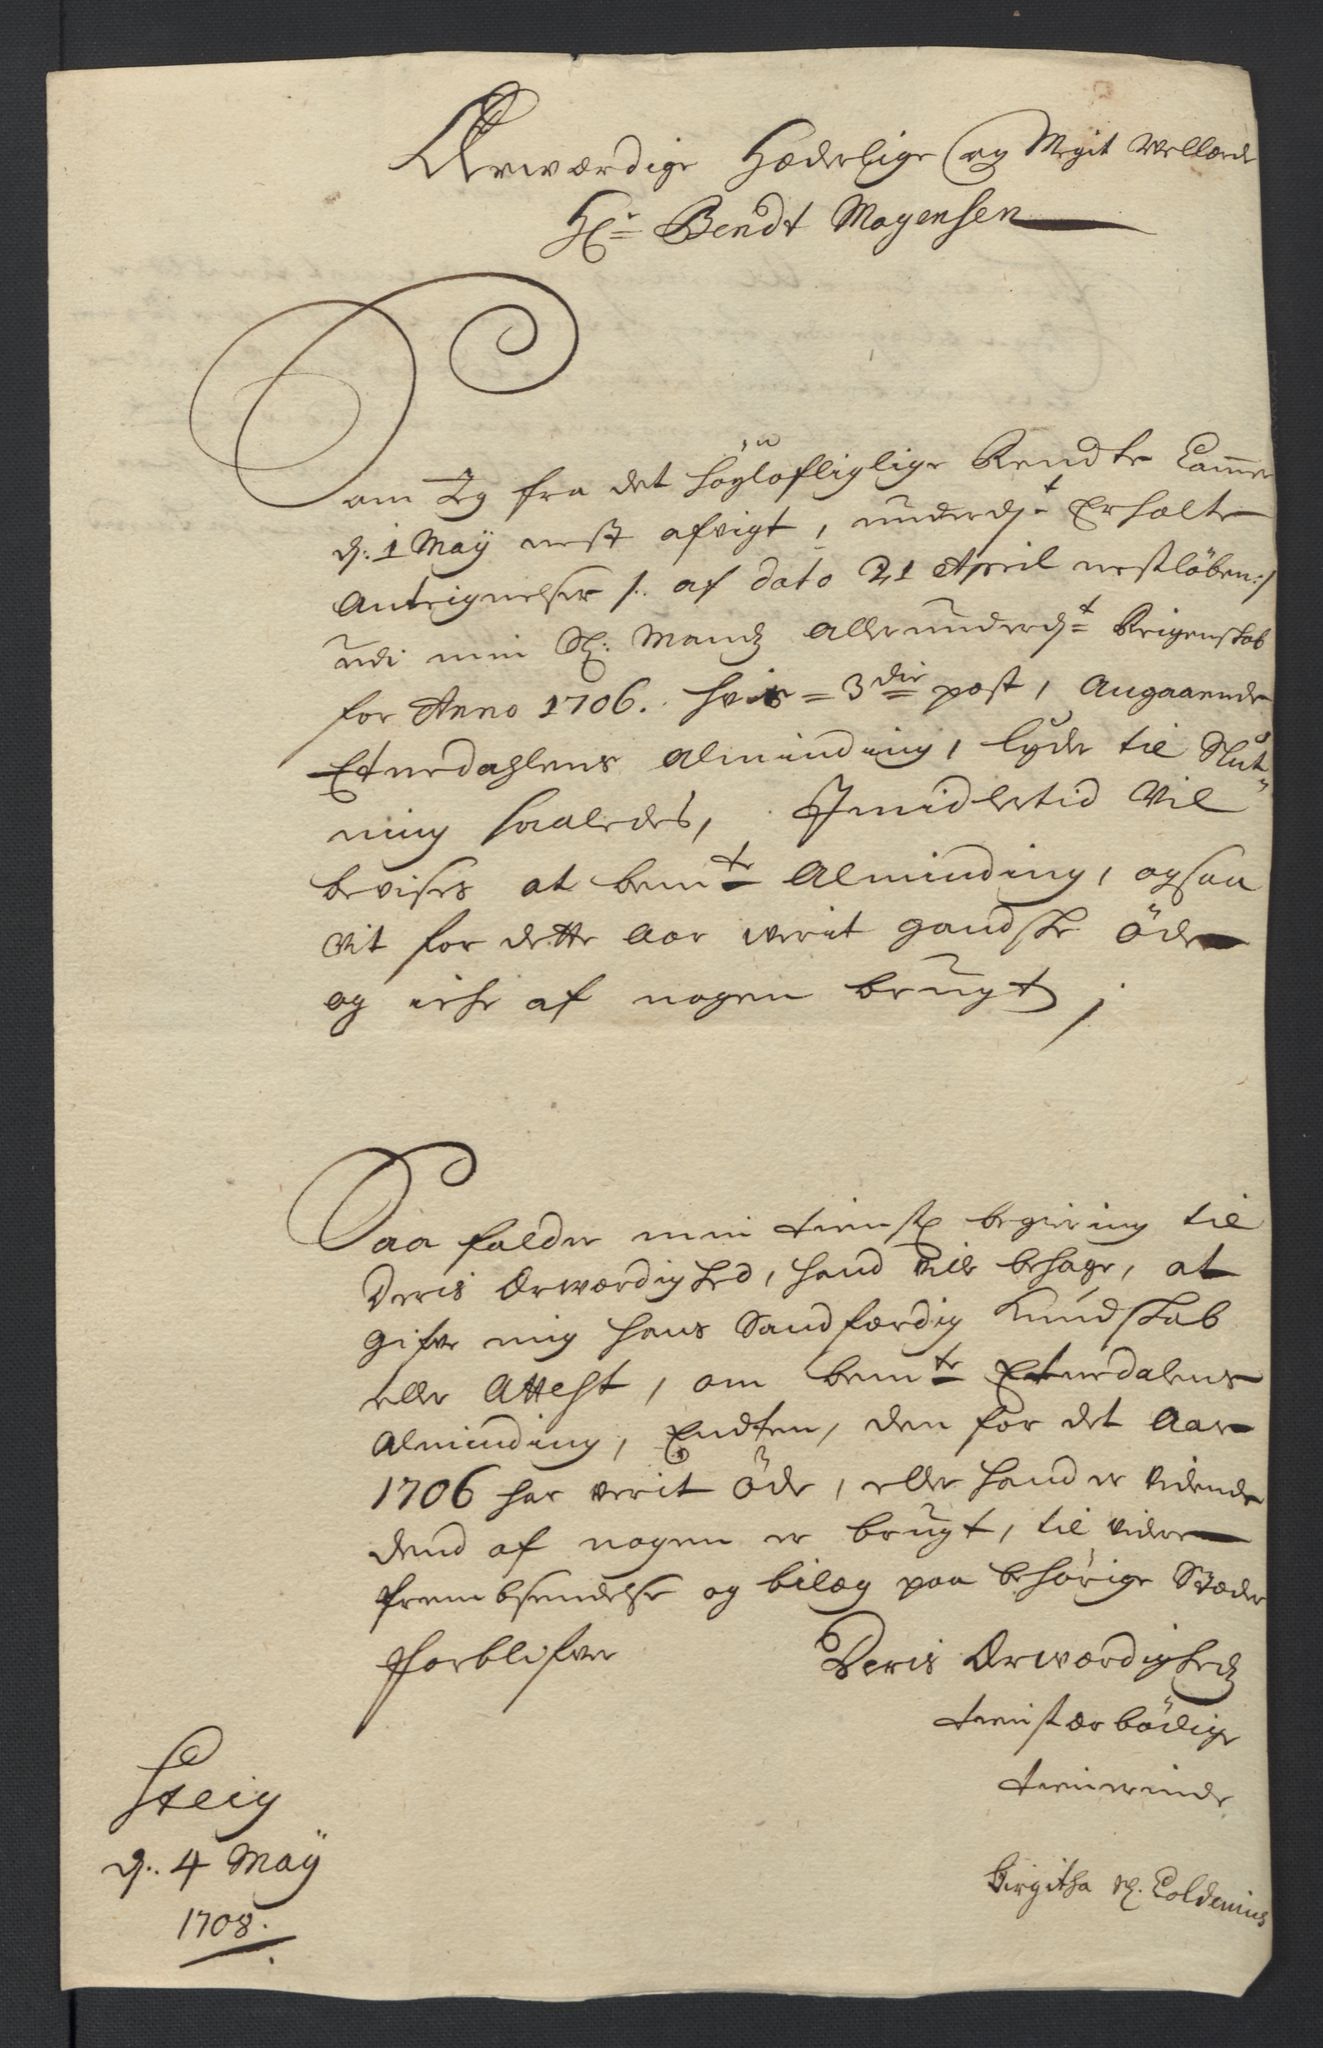 Ærværdige Hæderlige og Megit Vellærde
Hr. Bendt Mogensen
Som Jeg fra det höyloflige Rendte Cammer
d: 1 Maÿ nest afvigt, underdst Erholte
Anteignelser /: af dato 21 April nestløben:/
udi min Sl: Mands allerunderdst Reigenskab
for Anno 1706. hvis 3die post, Angaaende
Etnedahlens Alminding, lyder til Slut=
ning saaledes, Imidlertid vil
bevises at bemte Alminding, ogsaa
vit for dette Aar verit gandske öde
og iche af nogen brugt;
Saa falder min tienstl begiering til
Deris Ærværdighed, hand ville behage, at
gifve mig hans Sandfærdig Kundskab
eller Attest, om bemte Etnedalens
Alminding, Endten, den for det Aar
1706 har verit öde, eller hand er vidende
dend af nogen er brugt, til videre
frembsendelse og bilæg paa behörige Stæder
Forblifver Deris Ærværdigheds
tienstærbödige
tienerinde
Birgitha Sl. Coldevins
Steig
d: 4 Maÿ
1708.